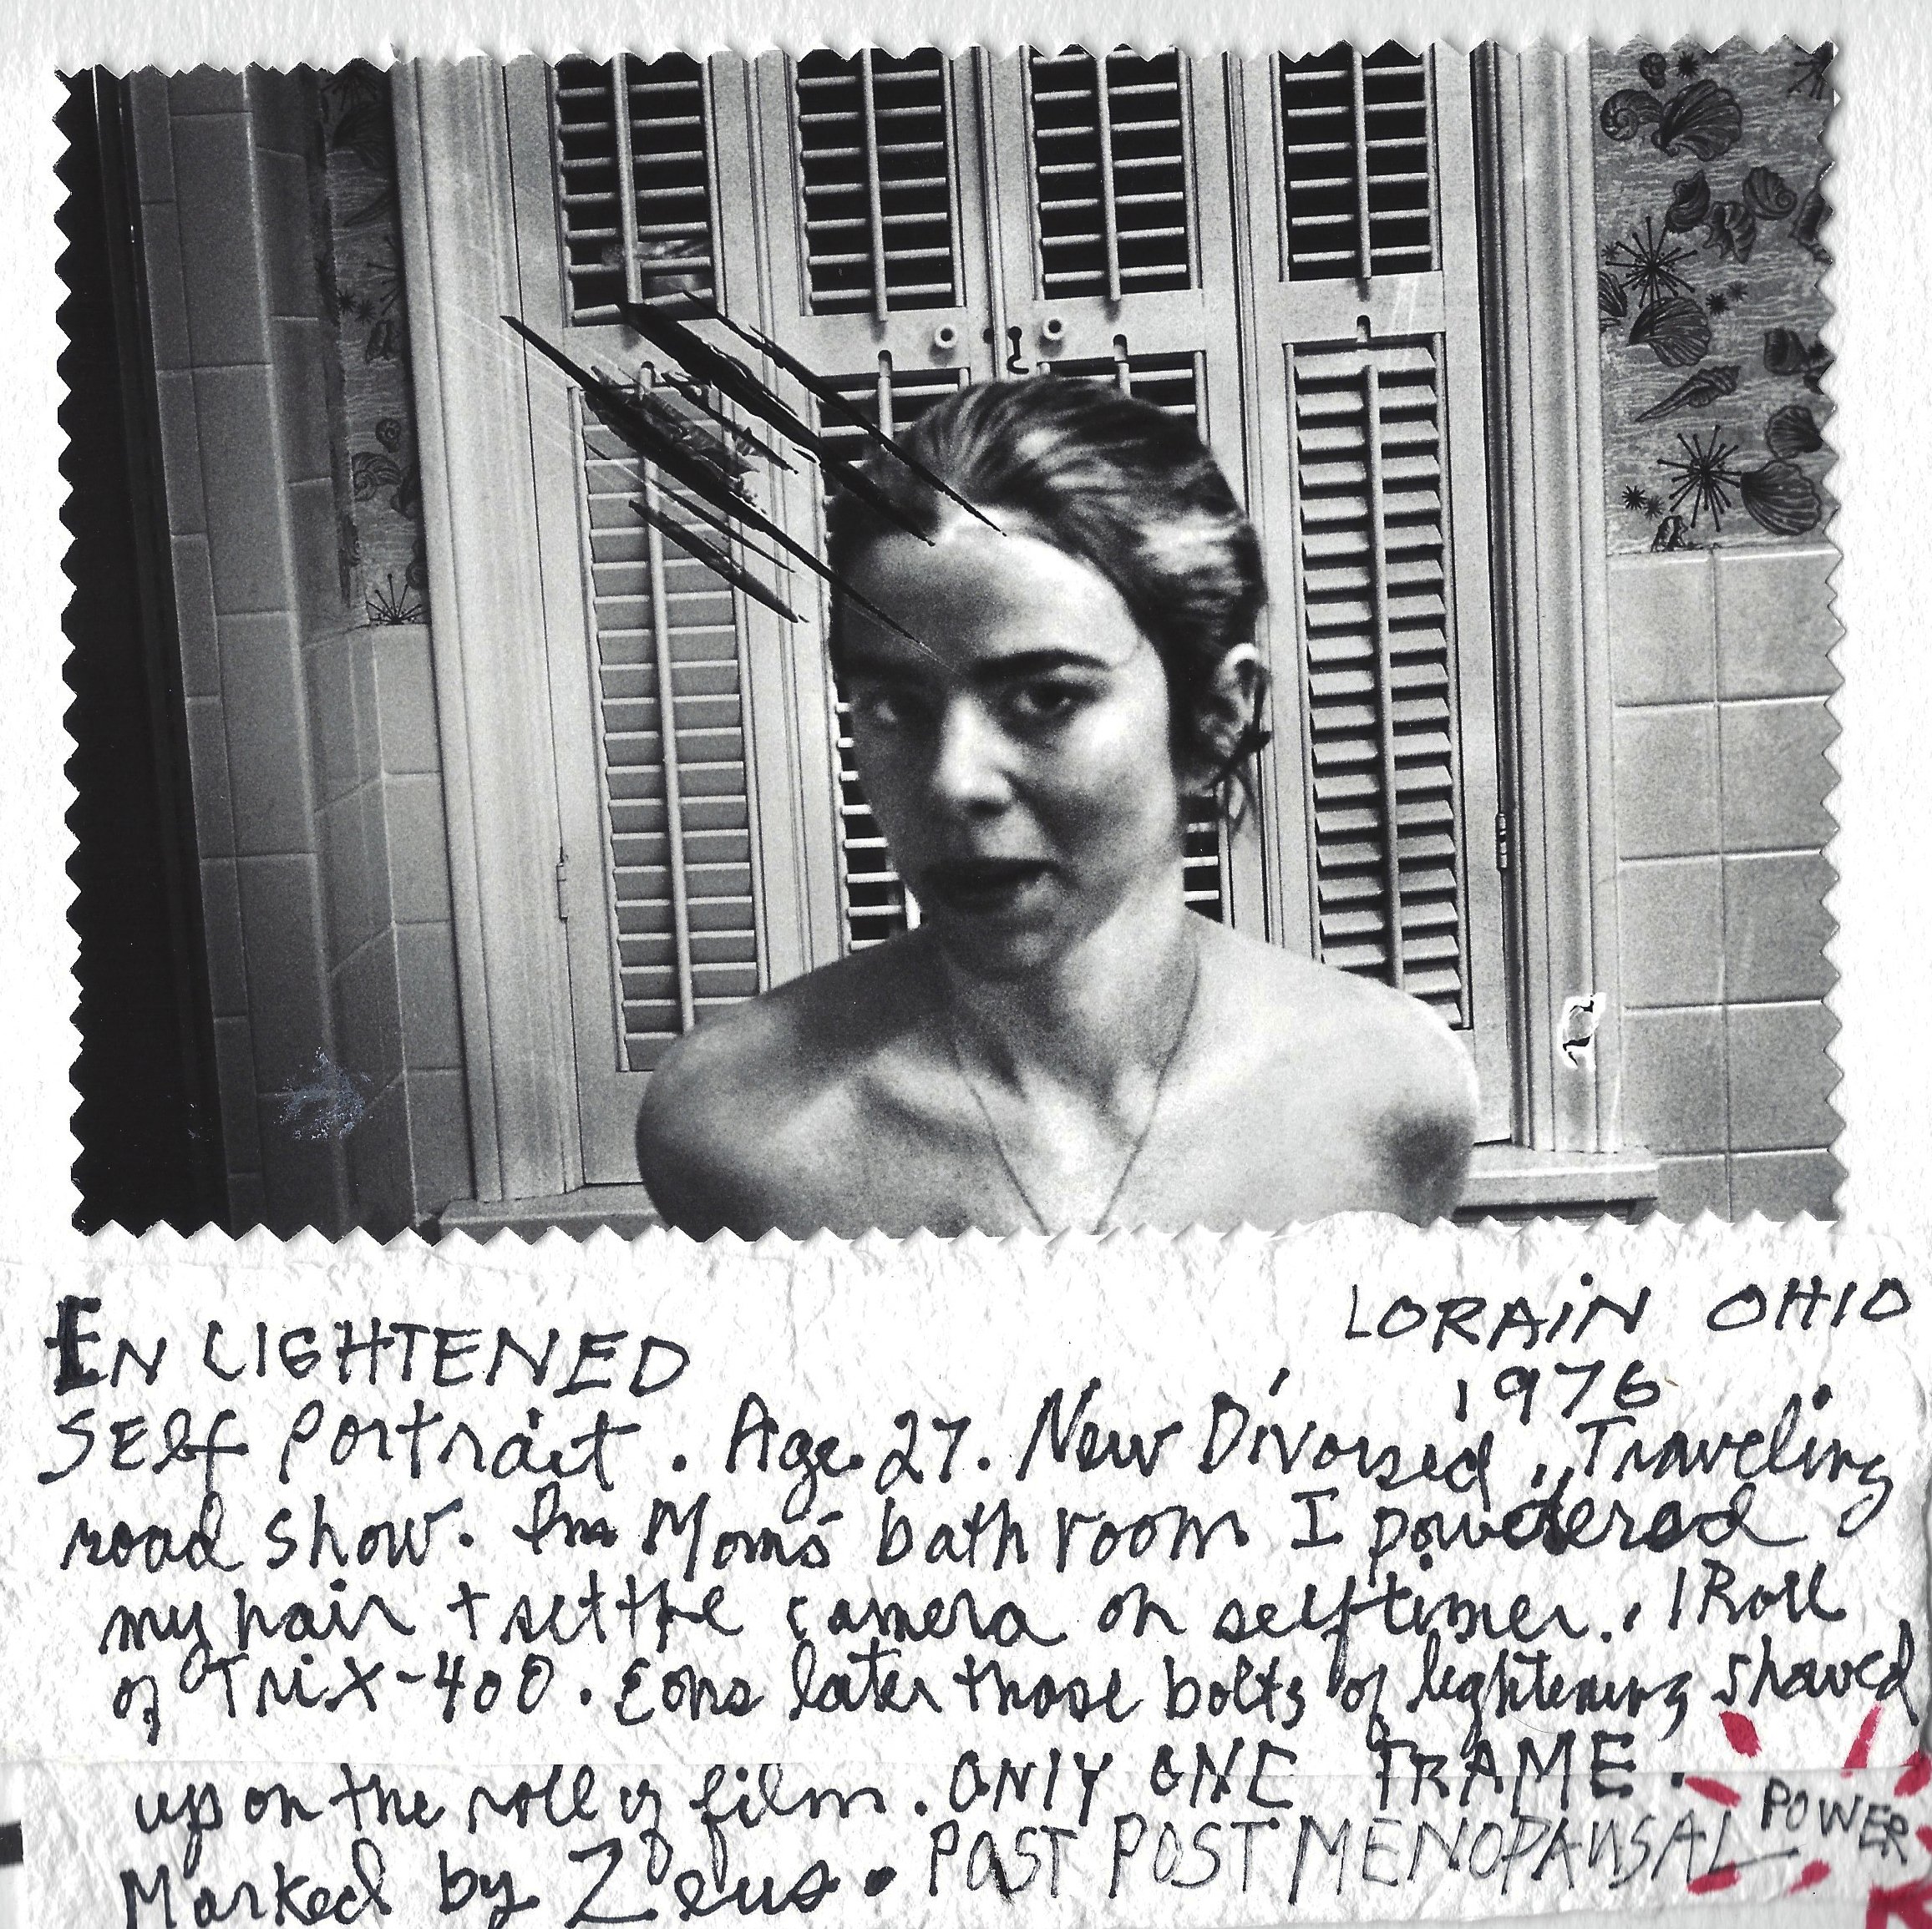 EN LIGHTENED
LORAIN OHIO
1976
SElf Portrait. Age 27. New Divorsed, Traveling
road show. In Mom's bathroom I powdered
my hair + set the camera on selftimer. 1 Roll
of TRiX-400. Eons later those bolts of lightening shaved
up on the roll of film. ONlY ONE FRAME.
Marked by Zeus. POST POST MENOPAUSAL POWER